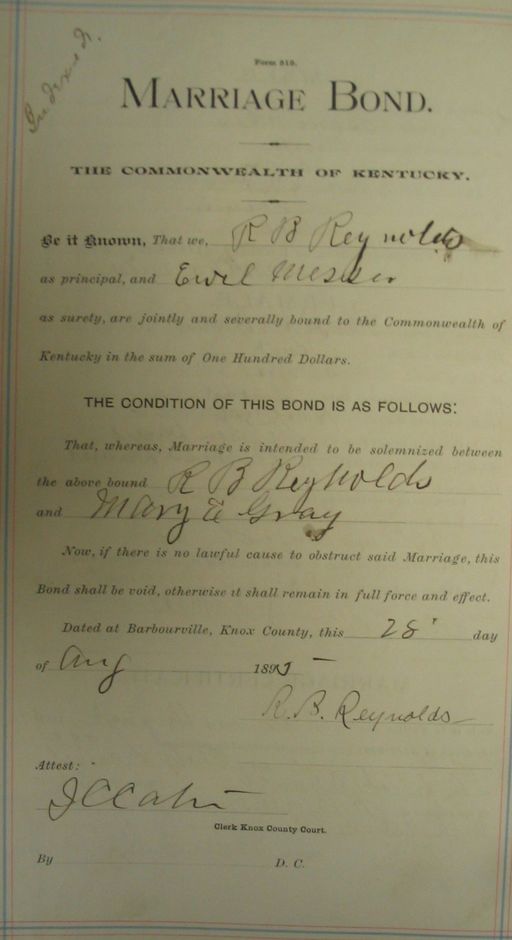 Indexed.
Form 510.
MARRIAGE BOND.
THE COMMONWEALTH OF KENTUCKY.
Be it Known, That we, R B Reynolds
as principal, and Ewel Messer
as surety, are jointly and severally bound to the Commonwealth of
Kentucky in the sum of One Hundred Dollars.
THE CONDITION OF THIS BOND IS AS FOLLOWS:
That, whereas, Marriage is intended to be solemnized between
the above bound R B Reynolds
and Mary E Gray
Now, if there is no lawful cause to obstruct said Marriage, this
Bond shall be void, otherwise it shall remain in full force and effect.
Dated at Barbourville, Knox County, this 28 day
of Aug 189
R. B. Reynolds
Attest:
Clerk Knox County Court.
By D. C.